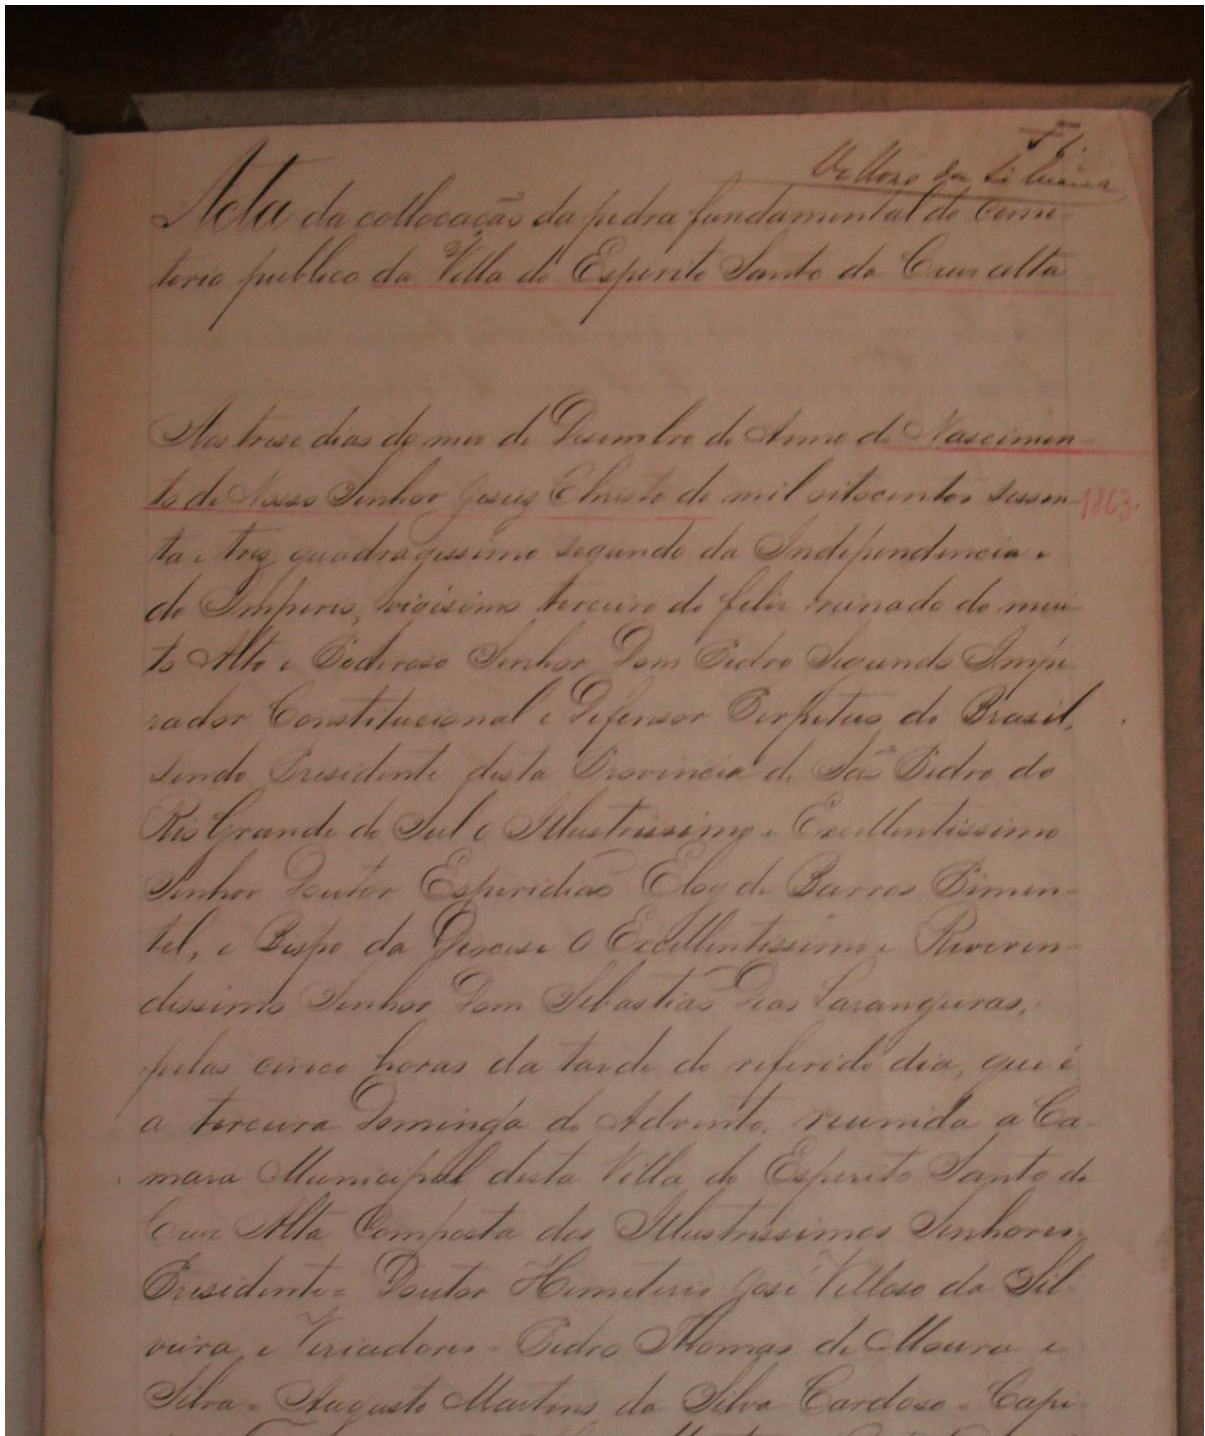 F 1.
Velloso da Silveira
Acta da collocação da pedra fundamental do Cemi-
terio publico da Villa do Esperito Santo da Cruz alta
Aos trese dias do mez de Desembro do Anno do Nascimen-
to de Nosso Senhor Jesus Christo de mil oitocentos sessen-
1863.
ta e tres, quadragessimo segundo da Independencia e
do Imperio, vigisimo terceiro do feliz reinado do mui-
to Alto e Poderoso Senhor Dom Pedro Segundo Impe-
rador Constitucional e Defensor Perpetuo do Brasil,
sendo Presidente desta Provincia de São Pedro do
Rio Grande do Sul o Illustrissimo e Excellentissimo
Senhor Doutor Esperidião Eloy de Barros Pimen-
tel, e Bispo da Diocese o Excellentissimo e Reveren-
dissimo Senhor Dom Sebastião Dias Larangeiras,
pelas cinco horas da tarde do referido dia, que é
a terceira Dominga do Advento, reunida a Ca-
mara Municipal desta Villa do Esperito Santo da
Cruz Alta Composta dos Illustrissimos Senhores,
Presidente = Doutor Hemeterio José Velloso da Sil-
veira, e Veriadores - Pedro Thomas de Moura e
Silva - Augusto Martins da Silva Cardoso - Capi-